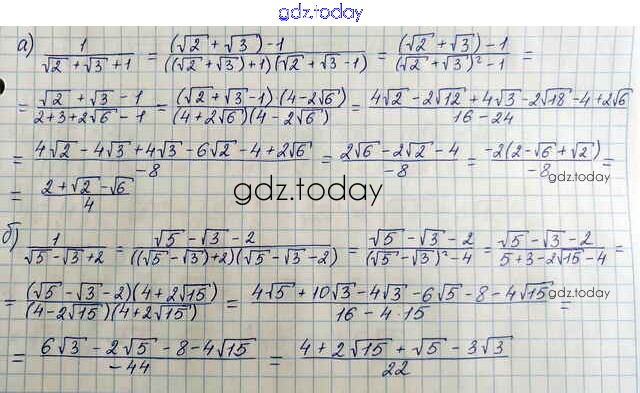 gdz.today
а) 1/(√2 + √3 + 1) = ((√2 + √3) - 1)/(((√2 + √3) + 1)(√2 + √3 - 1)) = ((√2 + √3) - 1)/((√2 + √3)² - 1) =
= (√2 + √3 - 1)/(2 + 3 + 2√6 - 1) = ((√2 + √3 - 1)(4 - 2√6))/((4 + 2√6)(4 - 2√6)) = (4√2 - 2√12 + 4√3 - 2√18 - 4 + 2√6)/(16 - 24)
= (4√2 - 4√3 + 4√3 - 6√2 - 4 + 2√6)/(-8) = (2√6 - 2√2 - 4)/(-8) = (-2(2 - √6 + √2))/(-8) =
gdz.today
= (2 + √2 - √6)/4
gdz.today
б) 1/(√5 - √3 + 2) = (√5 - √3 - 2)/(((√5 - √3) + 2)(√5 - √3 - 2)) = (√5 - √3 - 2)/((√5 - √3)² - 4) = (√5 - √3 - 2)/(5 + 3 - 2√15 - 4) =
= ((√5 - √3 - 2)(4 + 2√15))/((4 - 2√15)(4 + 2√15)) = (4√5 + 10√3 - 4√3 - 6√5 - 8 - 4√15)/(16 - 4·15) =
gdz.today
= (6√3 - 2√5 - 8 - 4√15)/(-44) = (4 + 2√15 + √5 - 3√3)/22